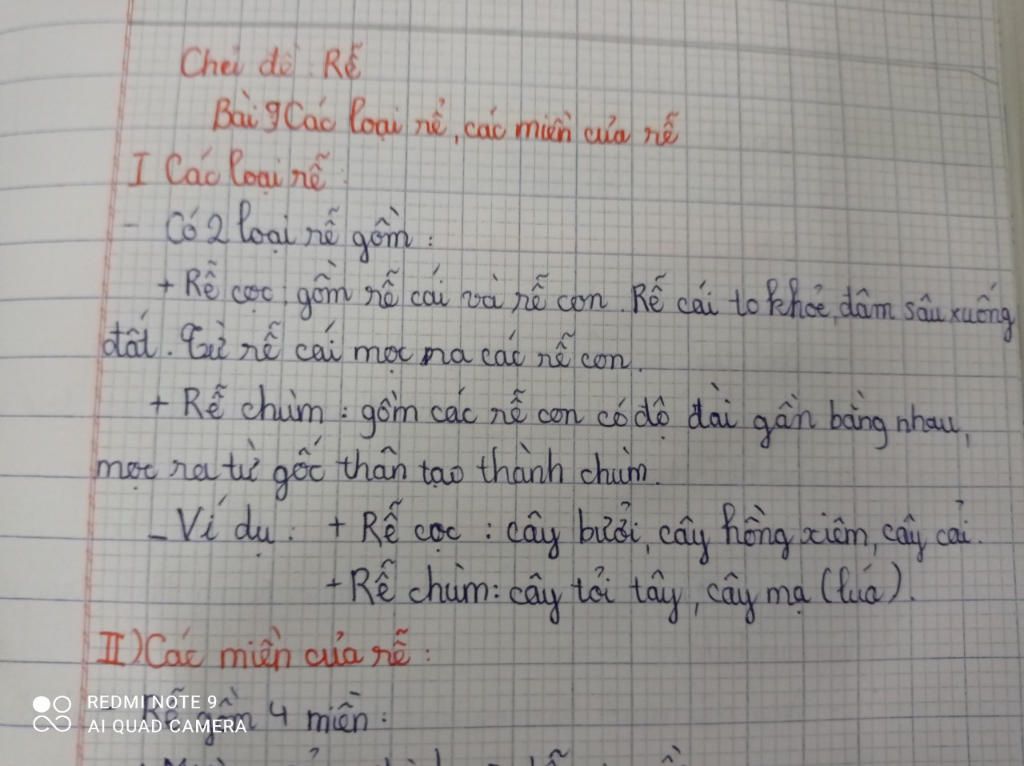 Chủ đề: Rễ
Bài 9 Các loại rễ, các miền của rễ
I Các loại rễ:
- Có 2 loại rễ gồm:
+ Rễ cọc: gồm rễ cái và rễ con. Rễ cái to khỏe, đâm sâu xuống
đất. Từ rễ cái mọc ra các rễ con.
+ Rễ chùm: gồm các rễ con có độ dài gần bằng nhau,
mọc ra từ gốc thân tạo thành chùm.
- Ví dụ: + Rễ cọc: cây bưởi, cây hồng xiêm, cây cải.
+ Rễ chùm: cây tỏi tây, cây mạ (lúa).
II) Các miền của rễ:
- Rễ gồm 4 miền:
REDMI NOTE 9
AI QUAD CAMERA